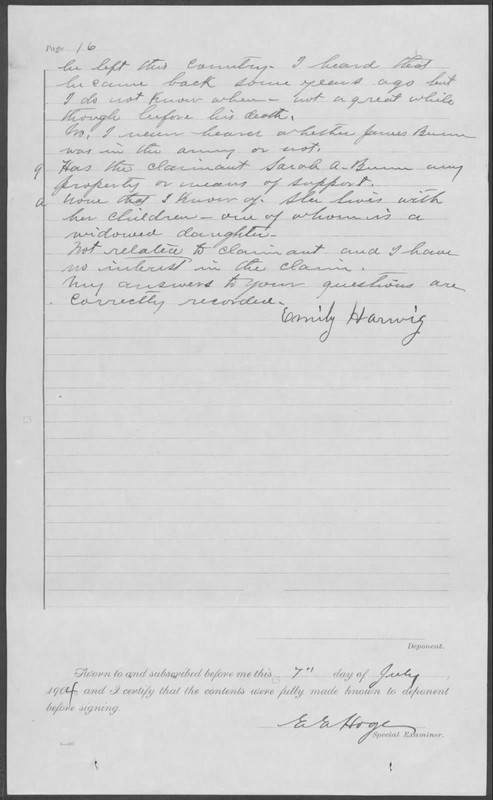 Page 16
he left this country. I heard that
he came back some years ago but
I do not know when - not a great while
though before his death.
No, I never heard whether James Bunn
was in the army or not.
Q Has the claimant Sarah A. Bunn any
property or means of support.
A None that I know of. She lives with
her children - one of whom is a
widowed daughter.
Not related to claimant and I have
no interest in the claim.
My answers to your questions are
correctly recorded.
Emily Harwig
Deponent.
Sworn to and subscribed before me this 7" day of July,
1904 and I certify that the contents were fully made known to deponent
before signing.
E E Hoge
Special Examiner.